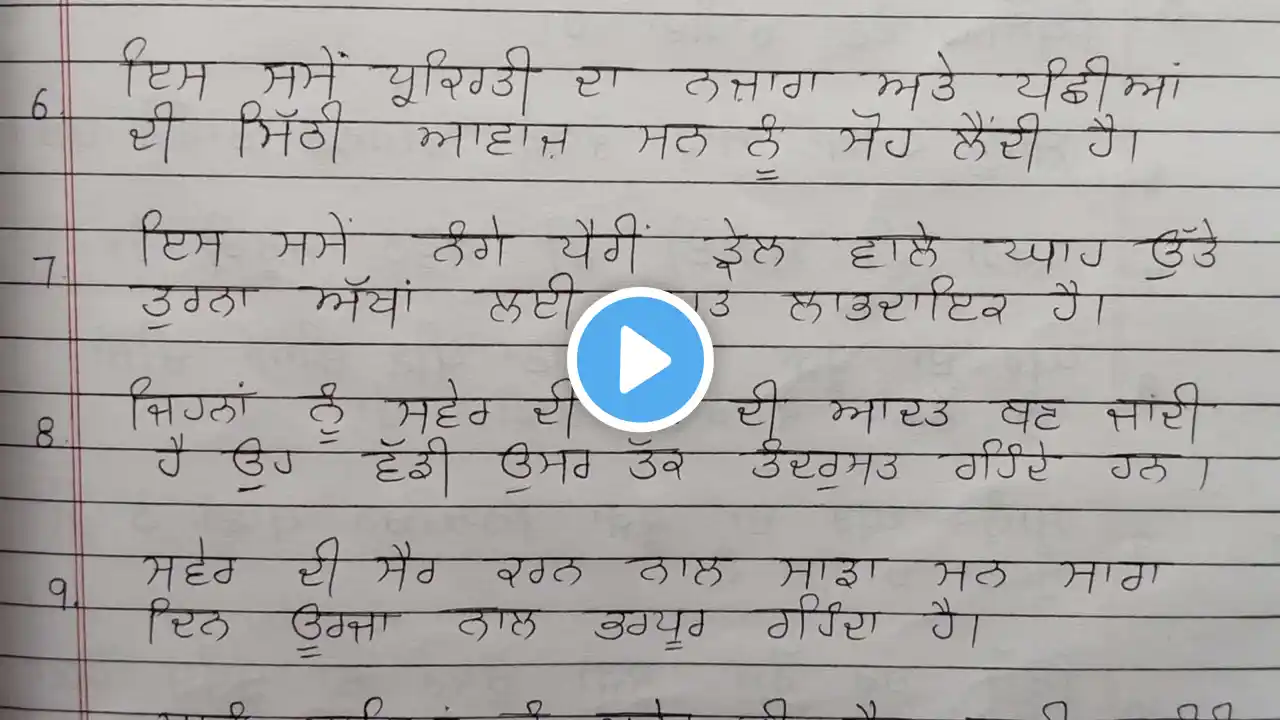 6. ਇਸ ਸਮੇਂ ਪ੍ਰਕਿਰਤੀ ਦਾ ਨਜ਼ਾਰਾ ਅਤੇ ਪੰਛੀਆਂ
ਦੀ ਮਿੱਠੀ ਆਵਾਜ਼ ਮਨ ਨੂੰ ਮੋਹ ਲੈਂਦੀ ਹੈ।
7. ਇਸ ਸਮੇਂ ਨੰਗੇ ਪੈਰੀਂ ਤ੍ਰੇਲ ਵਾਲੇ ਘਾਹ ਉੱਤੇ
ਤੁਰਨਾ ਅੱਖਾਂ ਲਈ ਲਾਭਦਾਇਕ ਹੈ।
8. ਜਿਹਨਾਂ ਨੂੰ ਸਵੇਰ ਦੀ ਦੀ ਆਦਤ ਬਣ ਜਾਂਦੀ
ਹੈ ਉਹ ਵੱਡੀ ਉਮਰ ਤੱਕ ਤੰਦਰੁਸਤ ਰਹਿੰਦੇ ਹਨ।
9. ਸਵੇਰ ਦੀ ਸੈਰ ਕਰਨ ਨਾਲ ਸਾਡਾ ਮਨ ਸਾਰਾ
ਦਿਨ ਊਰਜਾ ਨਾਲ ਭਰਪੂਰ ਰਹਿੰਦਾ ਹੈ।